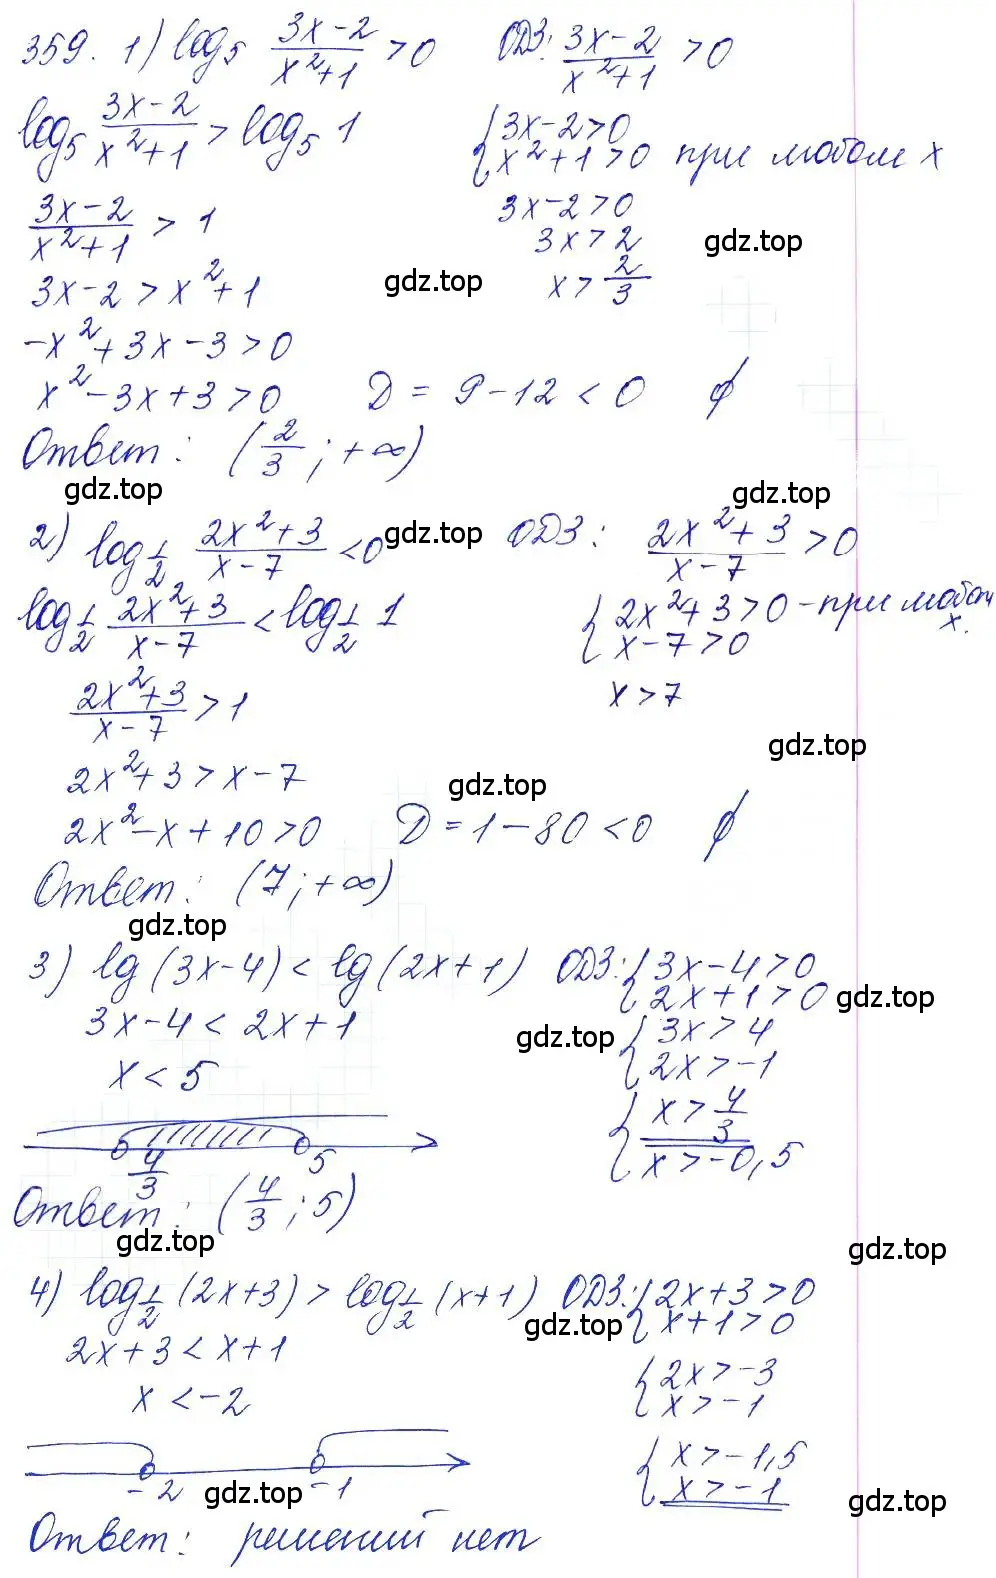 359. 1) log₅ (3x-2)/(x²+1) > 0 ОДЗ: (3x-2)/(x²+1) > 0
log₅ (3x-2)/(x²+1) > log₅ 1 {3x-2>0
{x²+1>0 при любом x
(3x-2)/(x²+1) > 1 3x-2>0
3x>2 gdz.top
3x-2 > x²+1 gdz.top x > 2/3
-x²+3x-3>0
x²-3x+3>0 D = 9-12 < 0 ∅
Ответ: (2/3; +∞)
gdz.top gdz.top
2) log_{1/2} (2x²+3)/(x-7) < 0 gdz.top ОДЗ: (2x²+3)/(x-7) > 0
log_{1/2} (2x²+3)/(x-7) < log_{1/2} 1 {2x²+3>0 - при любом x.
{x-7>0
(2x²+3)/(x-7) > 1 x>7
gdz.top
2x²+3 > x-7 gdz.top
2x²-x+10>0 D = 1-80 < 0 ∅
Ответ: (7; +∞)
gdz.top
3) lg(3x-4) < lg(2x+1) ОДЗ: {3x-4>0
{2x+1>0 gdz.top
3x-4 < 2x+1 gdz.top {3x>4
{2x>-1
x < 5 {x > 4/3
{x>-0,5
4/3 5
Ответ: (4/3; 5)
gdz.top gdz.top
4) log_{1/2} (2x+3) > log_{1/2} (x+1) ОДЗ: {2x+3>0
gdz.top {x+1>0
2x+3 < x+1 {2x>-3
{x>-1
x < -2 {x>-1,5
{x>-1
-2 gdz.top -1 gdz.top
Ответ: решений нет